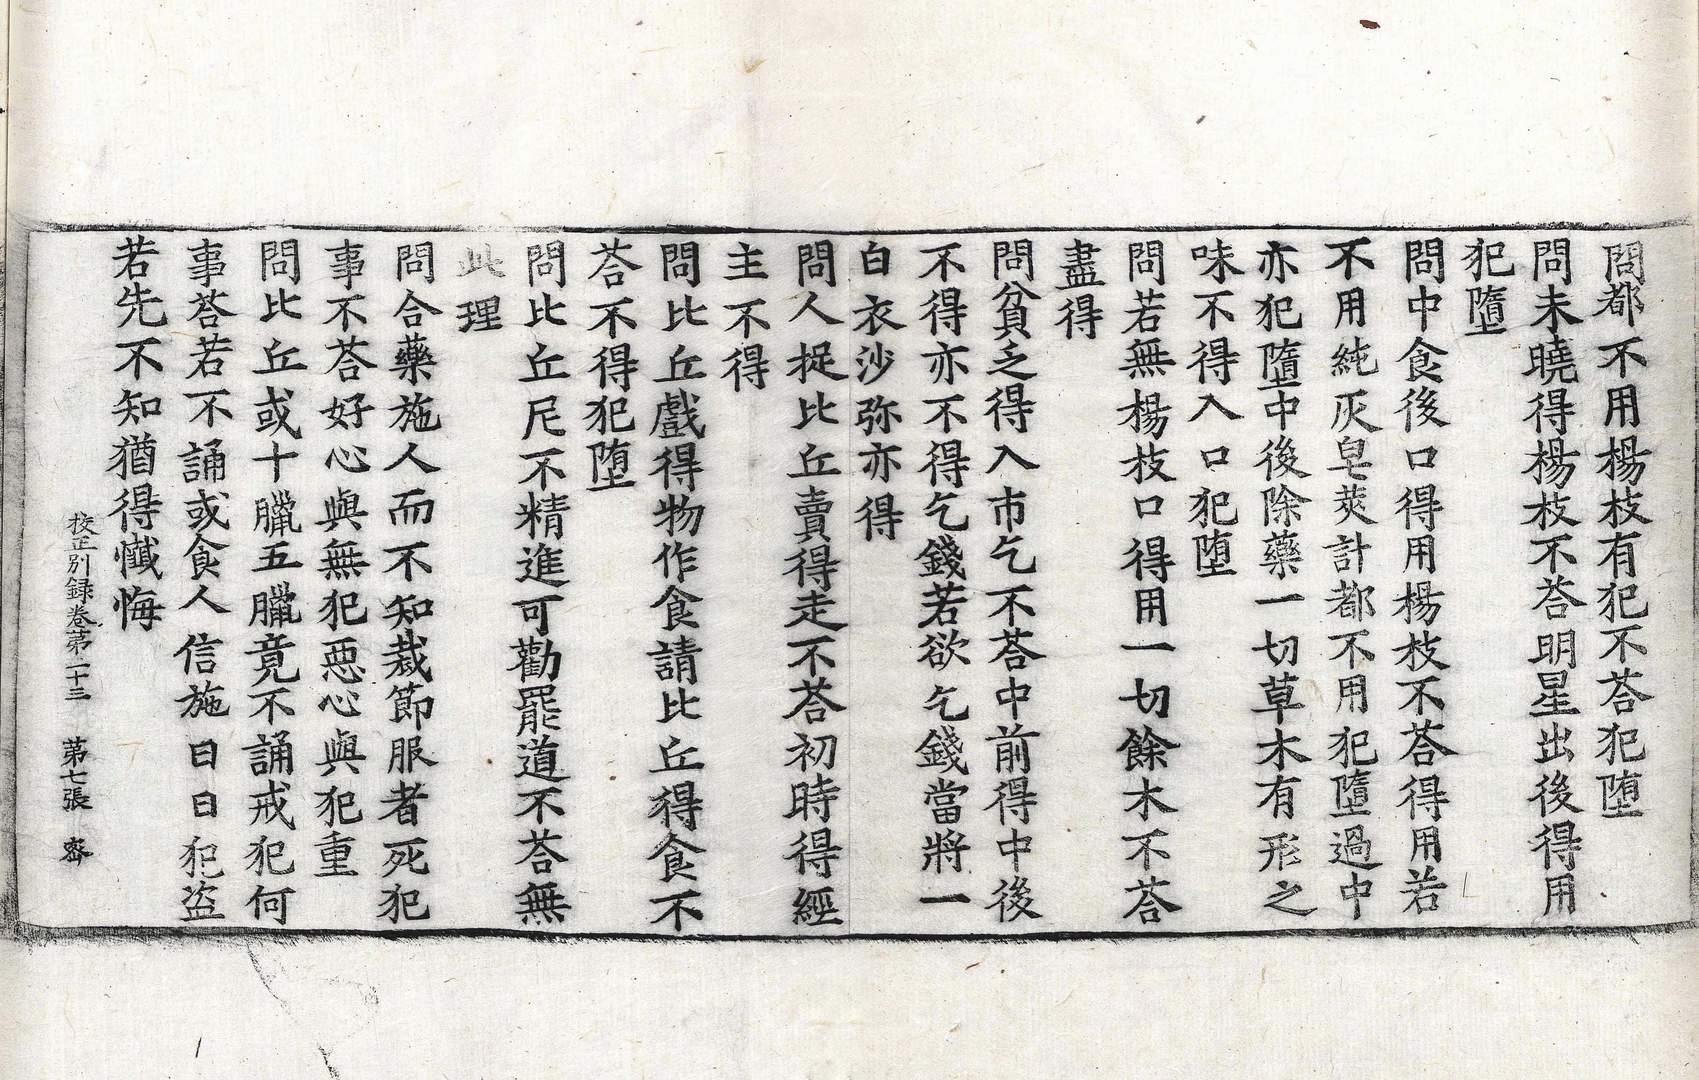 問都不用楊枝有犯不荅犯堕
問未曉得楊枝不荅明星出後得用
犯墮
問中食後口得用楊枝不荅得用若
不用純灰皂莢計都不用犯墮過中
亦犯墮中後除藥一切草木有形之
味不得入口犯堕
問若無楊枝口得用一切餘木不荅
盡得
問貧乏得入市乞不荅中前得中後
不得亦不得乞錢若欲乞錢當將一
白衣沙弥亦得
問人捉比丘賣得走不荅初時得經
主不得
問比丘戲得物作食請比丘得食不
荅不得犯堕
問比丘尼不精進可勸罷道不荅無
此理
問合藥施人而不知裁節服者死犯
事不荅好心與無犯惡心與犯重
問比丘或十臘五臘竟不誦戒犯何
事荅若不誦或食人信施日日犯盗
若先不知猶得懺悔
校正別録卷第二十三 第七張 密